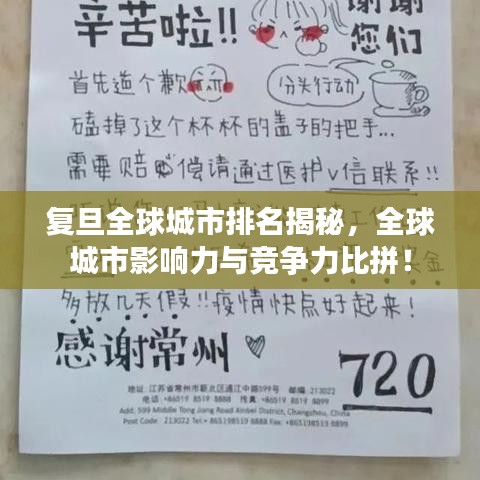 辛苦啦!! 谢谢
您们
首先道个歉
分头行动
磕掉了这个杯杯的盖子的把手...
需要赔偿请通过医护v信联系!!
复旦全球城市排名揭秘，全球
城市影响力与竞争力比拼！
多放几天假!!疫情快点好起来!
感谢常州
720
地址: 江苏省常州市新北区通江中路599号 邮编: 213022
电话: +86519 8519 8888 传真: +86519 8519 8899
Add. 599 Middle Tong Jiang Road Xinbei District, Changzhou, China
Post Code : 213022 Tel: +86519 8519 8888 Fax: +86519 8519 8899